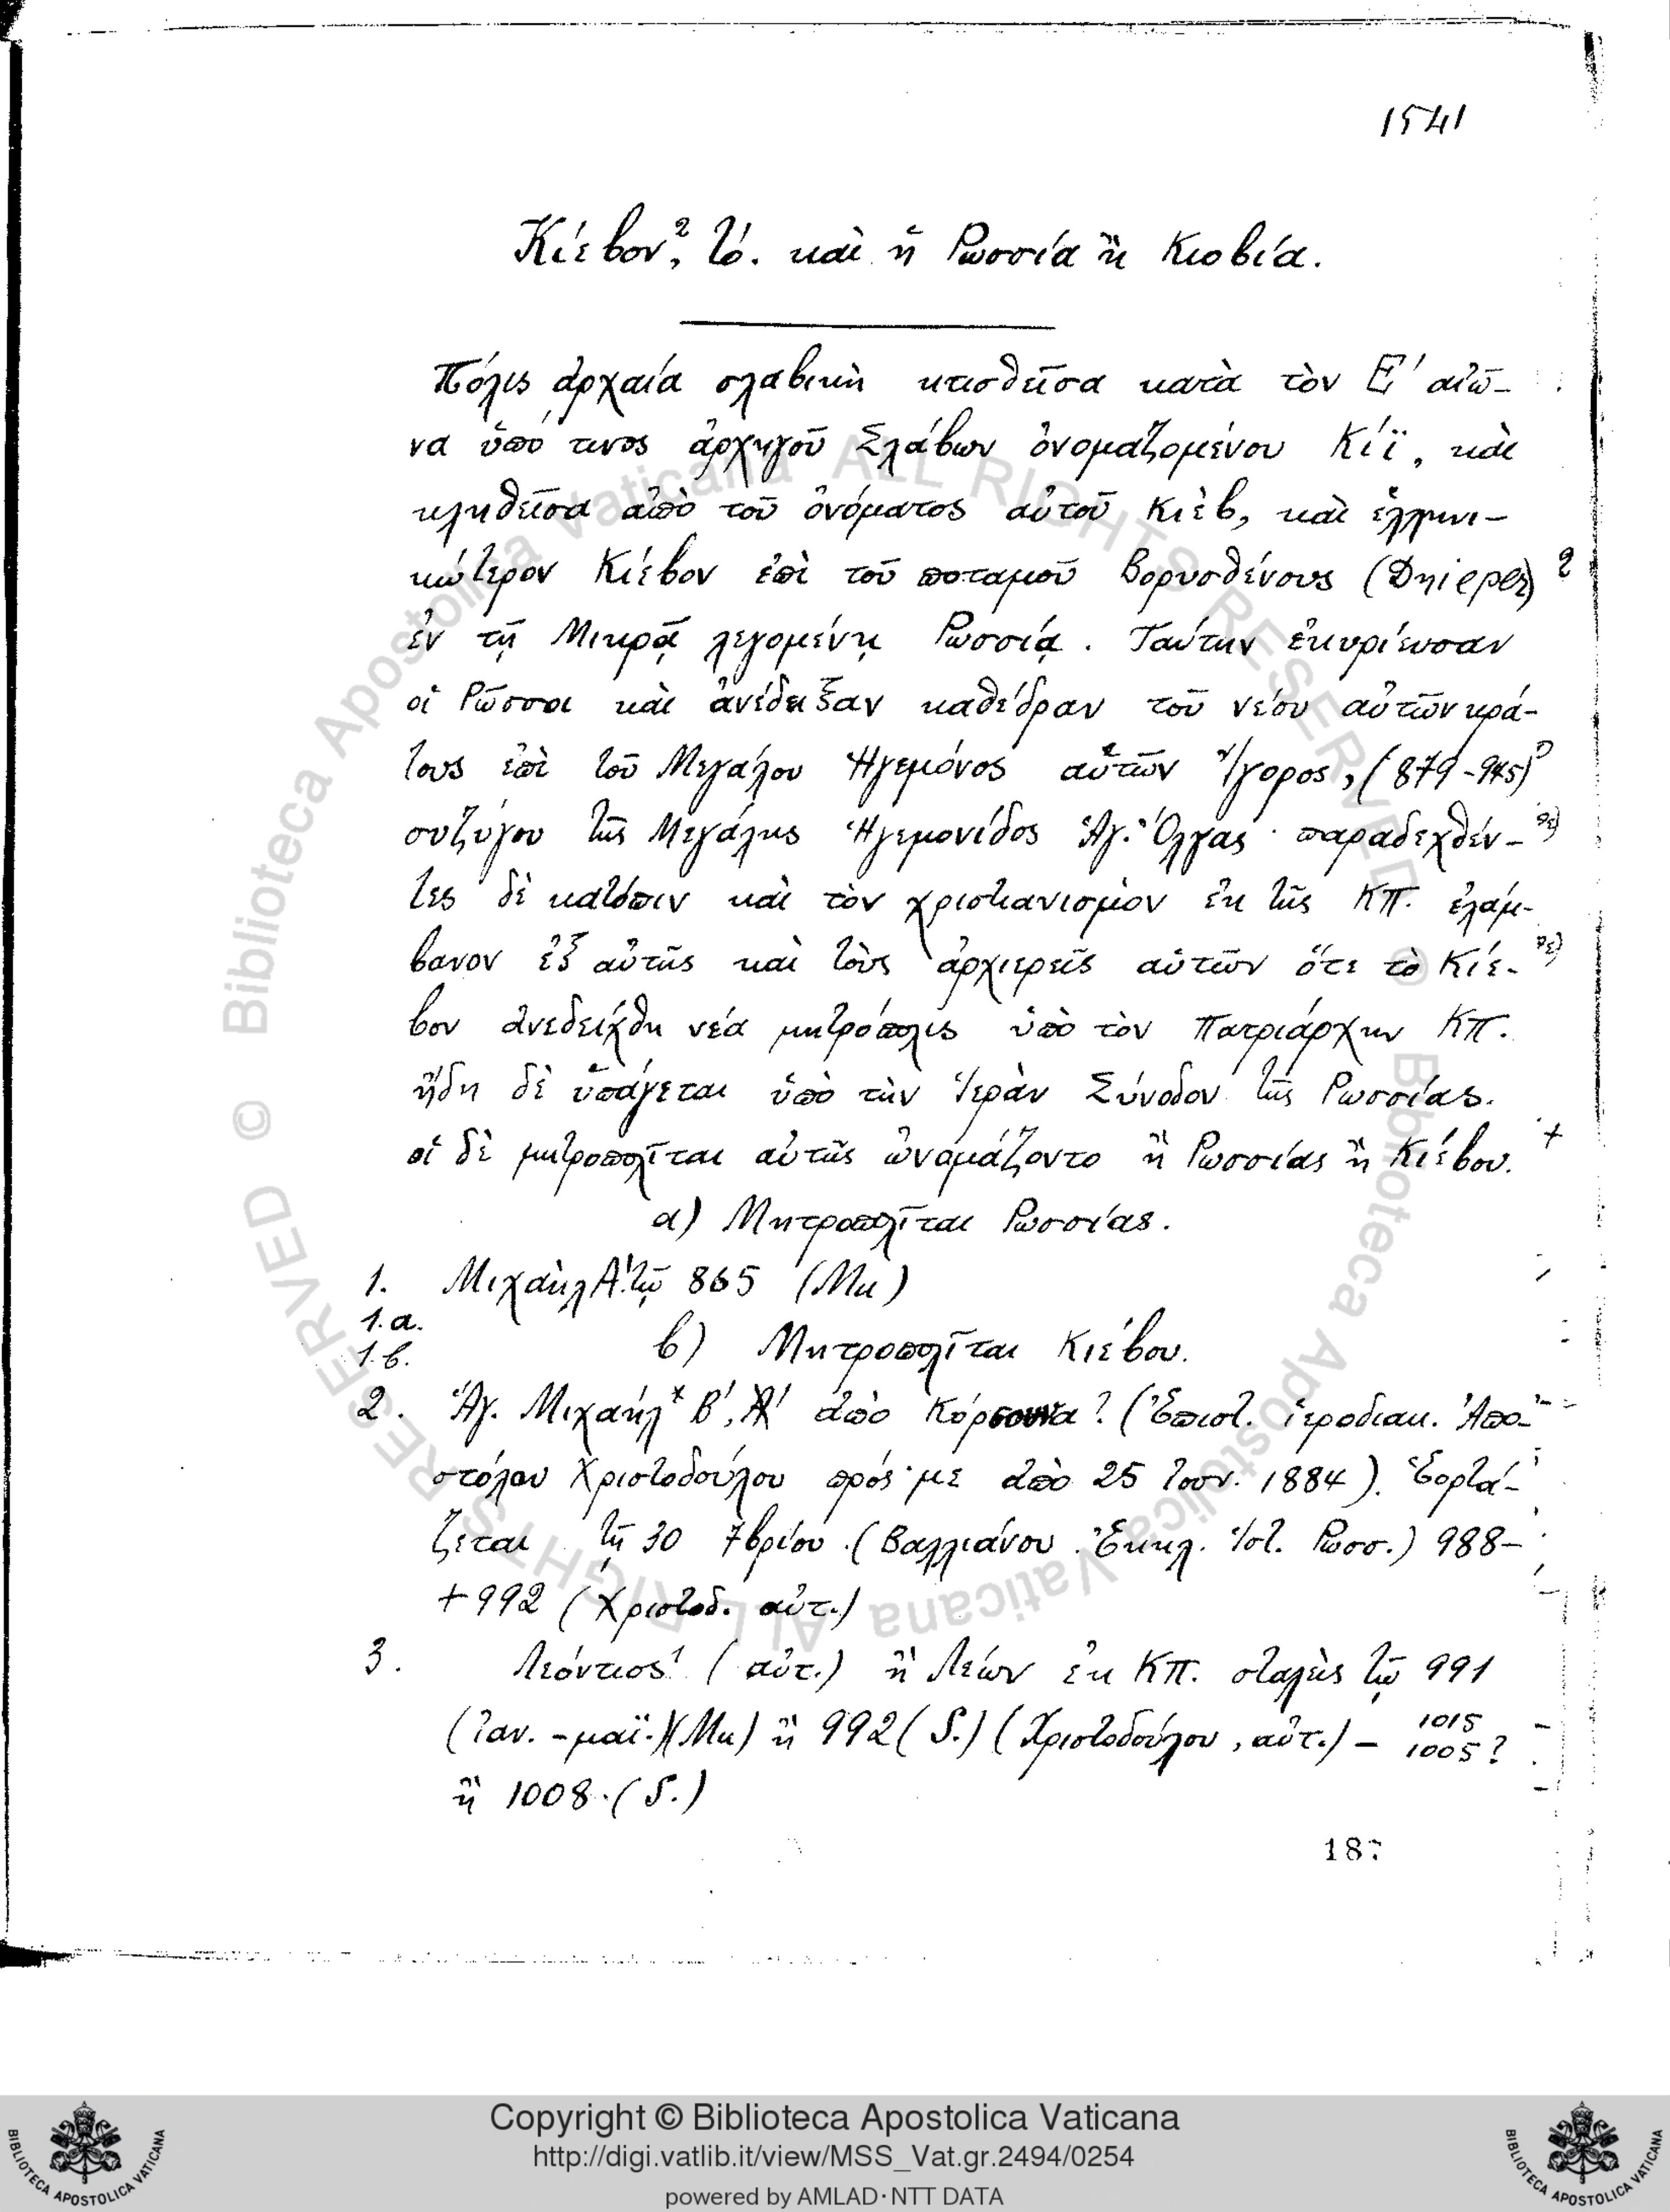 1541
Κίεβον, τό. καὶ ἡ Ρωσσία ἢ Κιοβία.
Πόλις ἀρχαία σλαβικὴ κτισθεῖσα κατὰ τὸν Ε′ αἰῶ-
να ὑπό τινος ἀρχηγοῦ Σλάβων ὀνομαζομένου Κίϊ, καὶ
κληθεῖσα ἀπὸ τοῦ ὀνόματος αὐτοῦ Κιὲβ, καὶ ἑλληνι-
κώτερον Κίεβον ἐπὶ τοῦ ποταμοῦ Βορυσθένους (Dnieper)
ἐν τῇ Μικρᾷ λεγομένῃ Ρωσσίᾳ. Ταύτην ἐκυρίευσαν
οἱ Ρῶσσοι καὶ ἀνέδειξαν καθέδραν τοῦ νέου αὐτῶν κρά-
τους ἐπὶ τοῦ Μεγάλου Ἡγεμόνος αὐτῶν Ἴγορος, (879-945)
συζύγου τῆς Μεγάλης Ἡγεμονίδος Ἁγ. Ὄλγας· παραδεχθέν-
τες δὲ κατόπιν καὶ τὸν χριστιανισμὸν ἐκ τῆς ΚΠ. ἐλάμ-
βανον ἐξ αὐτῆς καὶ τοὺς ἀρχιερεῖς αὐτῶν ὅτε τὸ Κίε-
βον ἀνεδείχθη νέα μητρόπολις ὑπὸ τὸν Πατριάρχην ΚΠ.
ἤδη δὲ ὑπάγεται ὑπὸ τὴν Ἱερὰν Σύνοδον τῆς Ρωσσίας.
οἱ δὲ μητροπολῖται αὐτῆς ὠνομάζοντο ἢ Ρωσσίας ἢ Κιέβου. +
α) Μητροπολῖται Ρωσσίας.
1. Μιχαὴλ Α′. τῷ 865 (Μκ)
1.α.
1.β.
β) Μητροπολῖται Κιέβου.
2. Ἁγ. Μιχαήλ* Β′, ἀπὸ Κόρσουνα? (Ἐπιστ. ἱεροδιακ. Ἀπο-
στόλου Χριστοδούλου πρός με ἀπὸ 25 Ἰουν. 1884). Ἑορτά-
ζεται τῇ 30 7βρίου. (Βαλλιάνου Ἐκκλ. Ἱστ. Ρωσσ.) 988-
+992 (Χριστοδ. αὐτ.)
3. Λεόντιος (αὐτ.) ἢ Λέων ἐκ ΚΠ. σταλεὶς τῷ 991
(Ἰαν.-μαϊ.)(Μκ) ἢ 992 (S.) (Χριστοδούλου, αὐτ.) - 1015
1005?
ἢ 1008. (S.)
187
© Biblioteca Apostolica Vaticana ALL RIGHTS RESERVED
© Biblioteca Apostolica Vaticana ALL RIGHTS RESERVED
Copyright © Biblioteca Apostolica Vaticana
http://digi.vatlib.it/view/MSS_Vat.gr.2494/0254
powered by AMLAD·NTT DATA
BIBLIOTECA APOSTOLICA VATICANA
BIBLIOTECA APOSTOLICA VATICANA